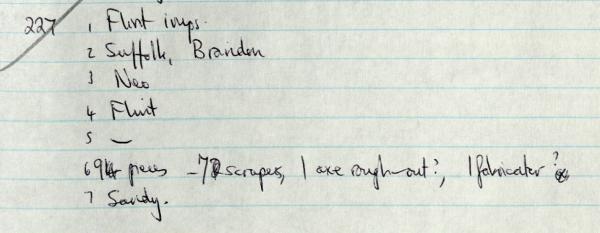 227 1 Flint imps.
2 Suffolk, Brandon
3 Neo
4 Flint
5 —
6 94 pieces - 7 scrapers, 1 axe rough-out?, 1 fabricator?
7 Sandy.